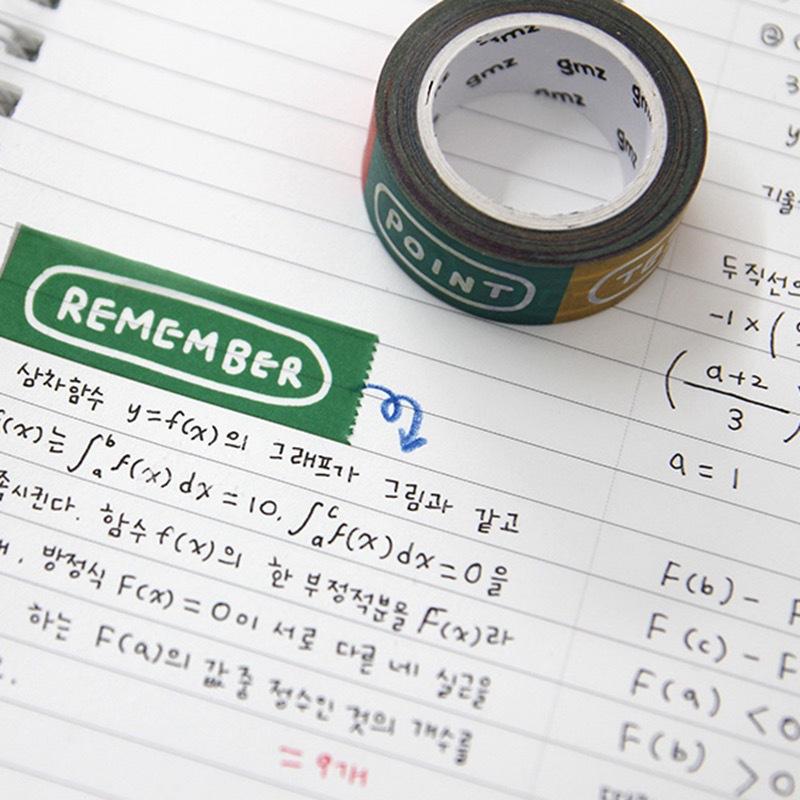 gmz
gmz
gmz
POINT
REMEMBER
삼차함수 y=f(x)의 그래프가 그림과 같고
f(x)는 ∫ₐᵇ f(x)dx=10, ∫ₐᶜ f(x)dx=0을
족시킨다. 함수 f(x)의 한 부정적분을 F(x)라
방정식 F(x)=0이 서로 다른 네 실근을
하는 F(a)의 값 중 정수인 것의 개수를
= 9개
3
y
기울
두 직선의
-1 × (
( a+2 / 3 )
a = 1
F(b) -
F(c) -
F(a) < 0
F(b) > 0